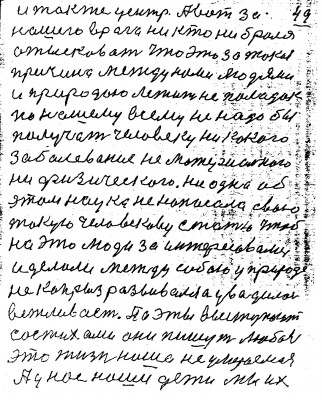 и также центр. А вот за- 49
нашего врага никто ни брался
отисковат что это за токая
причина между нами людями
и природою лежить не поладок
по нашему всему не надо бы
получат человеку ни какого
заболевание не материального
ни физического. ни одна об
этом наука не написала свою
такую человекову статью чтоб
на это люди заинтересовали
и делали между собою и природе
не каприз развивался а увидили
вежливаст. По эты
состихами они пишут любов
это жизн наша не умераемая
А у нас наши дети мы их